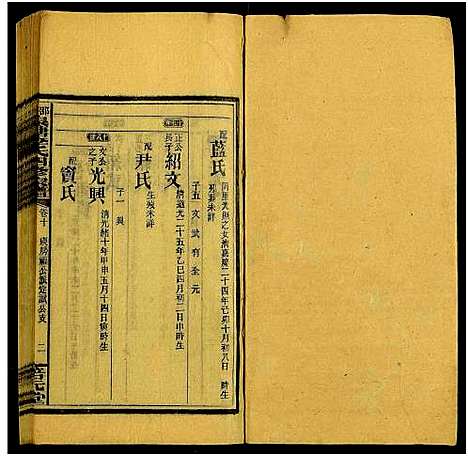 配
藍氏
同里光照之女清嘉慶二十四年己卯十月初八日 時生
歿葬未詳
子五 文 武 有 全 元
正公
長子
紹文
清道光二十五年乙巳四月初二日申時生
配
尹氏
生歿未詳
子一 興
文公
之子
光興
清光緒十年甲申五月十四日寅時生
配
賀氏
卷十
二